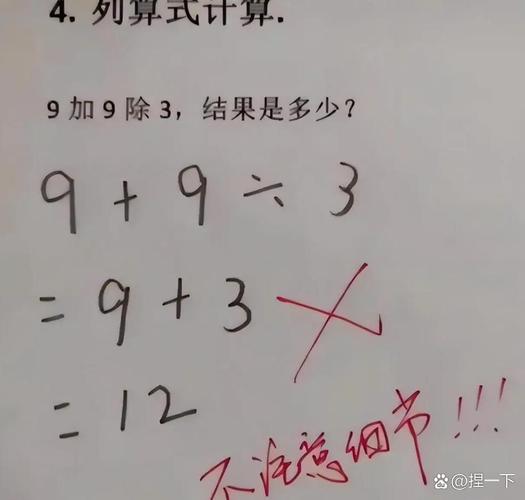 4. 列算式计算.
9 加 9 除 3，结果是多少？
9 + 9 ÷ 3
= 9 + 3
= 12
不注意细节!!!
捏一下